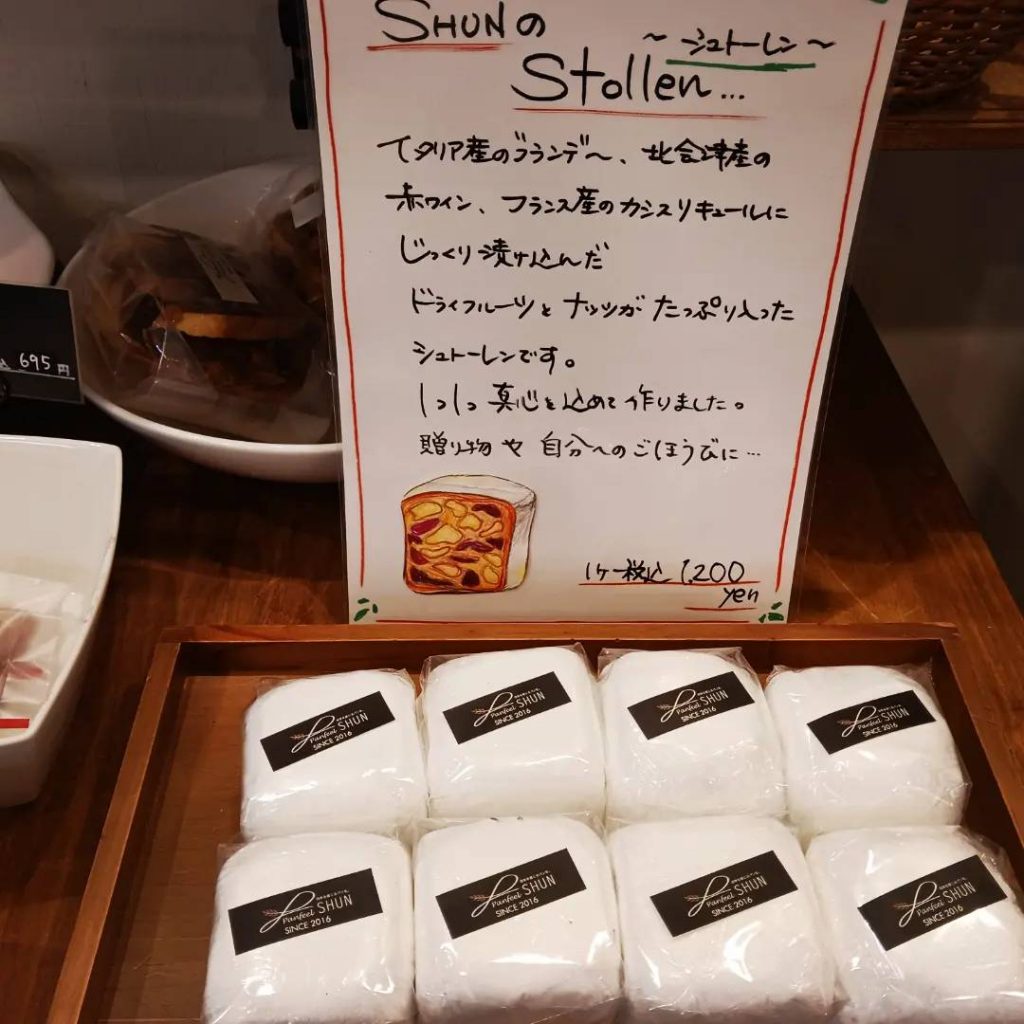 SHUNの
～シュトーレン～
Stollen...
イタリア産のブランデー、北会津産の
赤ワイン、フランス産のカシスリキュールに
じっくり漬け込んだ
ドライフルーツとナッツがたっぷり入った
シュトーレンです。
1つ1つ真心を込めて作りました。
贈り物や自分へのごほうびに…
1ヶ 税込 1,200
yen
695円
Panfeel SHUN
SINCE 2016
Panfeel SHUN
SINCE 2016
Panfeel SHUN
SINCE 2016
Panfeel SHUN
SINCE 2016
Panfeel SHUN
SINCE 2016
Panfeel SHUN
SINCE 2016
Panfeel SHUN
SINCE 2016
Panfeel SHUN
SINCE 2016